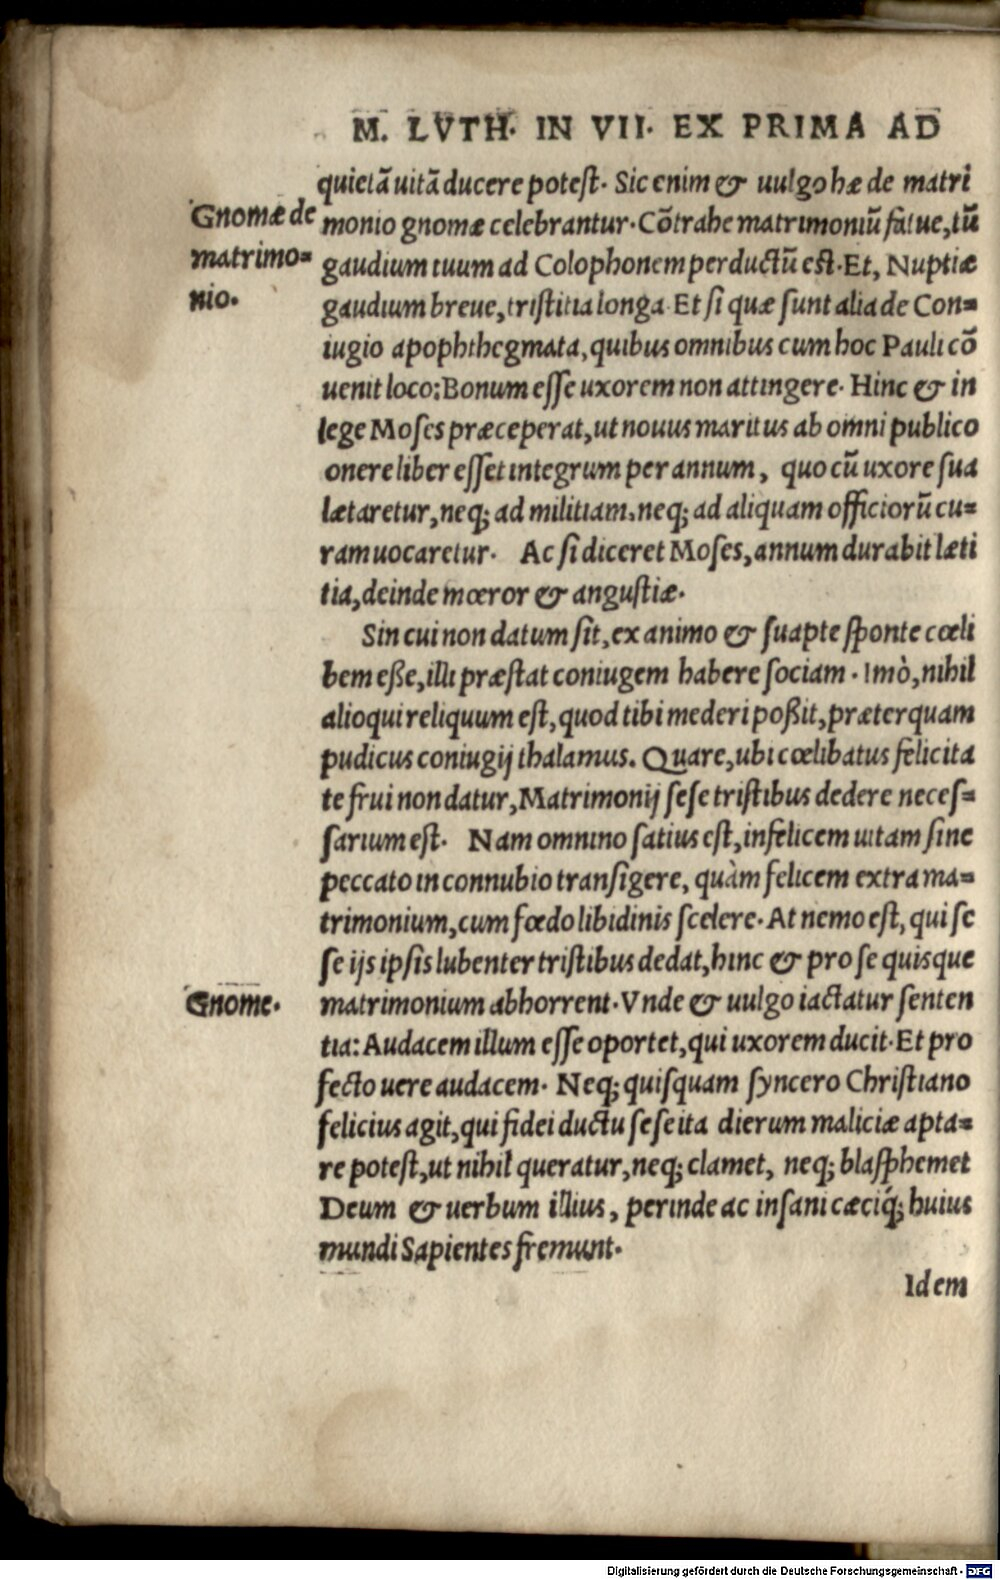 M. LVTH. IN VII. EX PRIMA AD
quietā uitā ducere potest. Sic enim & uulgo hæ de matri
Gnomæ de
matrimo=
nio.
monio gnomæ celebrantur. Cōtrahe matrimoniū fatue, tū
gaudium tuum ad Colophonem perductū est. Et, Nuptiæ
gaudium breue, tristitia longa. Et si quæ sunt alia de Con=
iugio apophthegmata, quibus omnibus cum hoc Pauli cō
uenit loco: Bonum esse uxorem non attingere. Hinc & in
lege Moses præceperat, ut nouus maritus ab omni publico
onere liber esset integrum per annum, quo cū uxore sua
lætaretur, neq; ad militiam, neq; ad aliquam officiorū cu=
ram uocaretur. Ac si diceret Moses, annum durabit læti
tia, deinde mœror & angustiæ.
Sin cui non datum sit, ex animo & suapte sponte cœli
bem eße, illi præstat coniugem habere sociam. Imò, nihil
alioqui reliquum est, quod tibi mederi poßit, præterquam
pudicus coniugij thalamus. Quare, ubi cœlibatus felicita
te frui non datur, Matrimonij sese tristibus dedere neces=
sarium est. Nam omnino satius est, infelicem uitam sine
peccato in connubio transigere, quàm felicem extra ma=
trimonium, cum fœdo libidinis scelere. At nemo est, qui se
se ijs ipsis lubenter tristibus dedat, hinc & pro se quisque
Gnome.
matrimonium abhorrent. Vnde & uulgo iactatur senten
tia: Audacem illum esse oportet, qui uxorem ducit. Et pro
fecto uere audacem. Neq; quisquam syncero Christiano
felicius agit, qui fidei ductu sese ita dierum maliciæ apta=
re potest, ut nihil queratur, neq; clamet, neq; blasphemet
Deum & uerbum illius, perinde ac insani cæciq́; huius
mundi Sapientes fremunt.
Idem
Digitalisierung gefördert durch die Deutsche Forschungsgemeinschaft - DFG